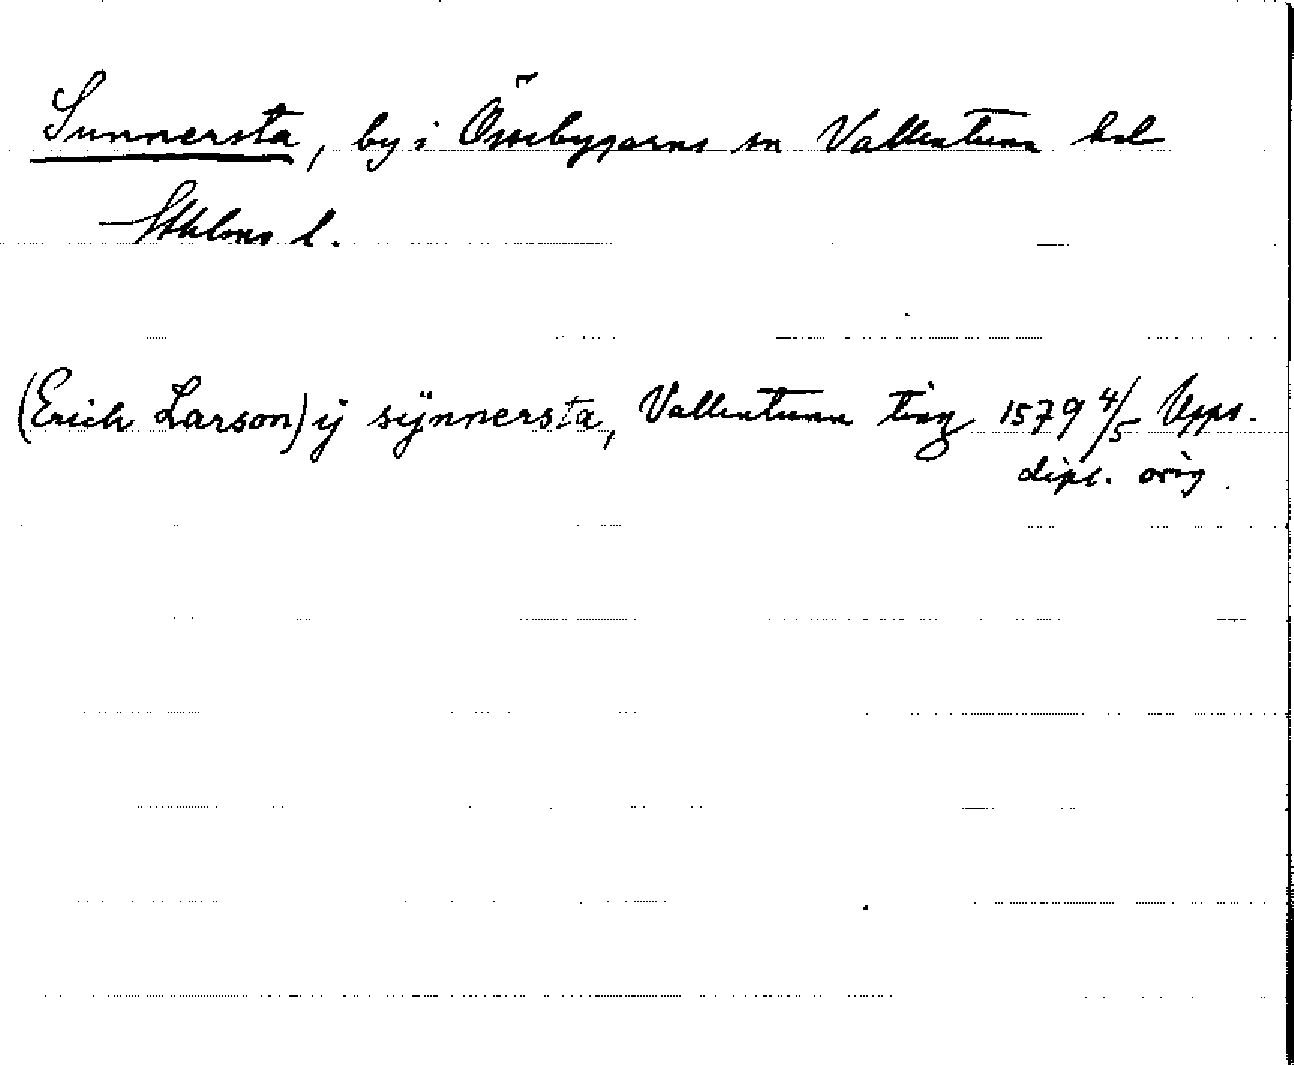 Sunnersta, by i Össebygarns sn Vallentuna hd
Sthlms l.
(Erich Larson) ij sÿnnersta, Vallentuna ting 1579 4/5 Upps.
dipl. orig